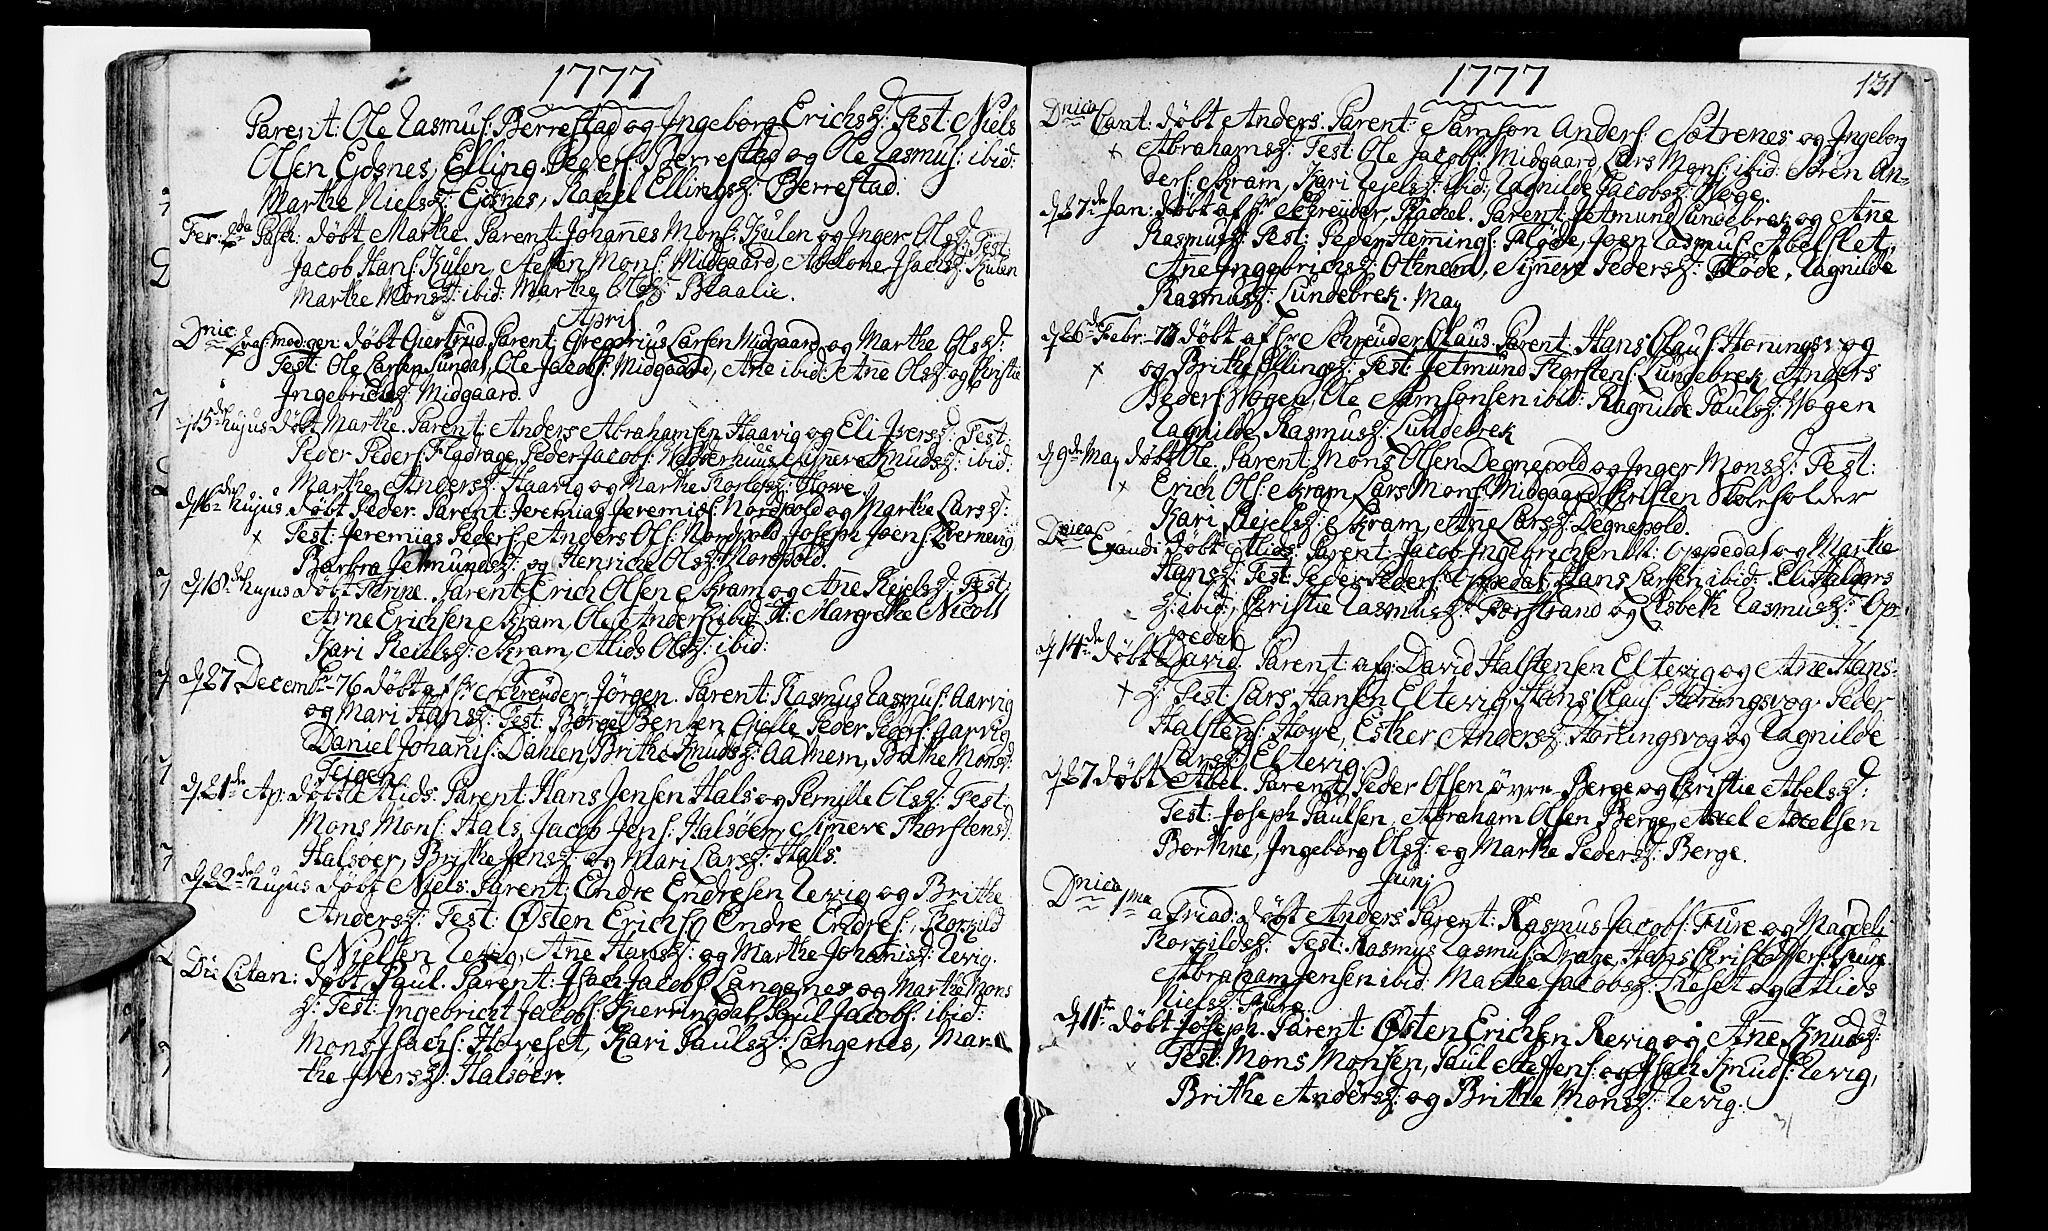 1777
Parent: Ole Rasmus: Berrestad og Ingeborg Erichsd: Test: Niels
Olsen Eidsnes, Elling Peders: Berrestad og Ole Rasmus: ibid:
Marthe Nielsd: Eidsnes, Rachel Ellingsd: Berrestad.
Fer: 2da Pasch: døbt Marthe. Parent: Johannes Mons: Kulen og Inger Olsd: Test:
Jacob Hans: Kulen, Steffen Mons: Midgaard, Abelone Isachsd: Kulen
Marthe Monsd: ibid: Marthe Olsd: Blaalie.
April
Dnic: qvas: mod: gen: døbt Giertrud. Parent: Gregorius Larsen Midgaard og Marthe Olsd:
Test: Ole Larsen Sundal, Ole Jacobs: Midgaard, Ane ibid: Anne Olsd: og Christie
Ingebrichtsd: Midgaard.
d: 15de hujus døbt Marthe. Parent: Anders Abrahamsen Haavig og Eli Iversd: Test:
Peder Peders: Fladrage, Peder Jacobs: Nedberhuus, Synneve Knudsd: ibid:
Marthe Andersd: Haavig og Marthe Thorlesd: Howe.
d: 16de hujus døbt Peder. Parent: Jeremias Jeremiss: Nordpold og Marthe Larsd:
Test: Jeremias Peders: Anders Ols: Nordpold, Joseph Joens: Qvernevig
Barbra Jetmundsd: og Henriche Olsd: Nordpold.
d: 18de hujus døbt Thrine. Parent: Erich Olsen Skram og Anne Reielsd: Test:
Arne Erichsen Skram, Ole Anders: ibid: St: Margrethe Nicoll
Kari Reielsd: Skram, Alids Olsd: ibid:
d: 27 Decembr: -76 døbt af Hr Schreuder, Jørgen. Parent: Rasmus Rasmus: Aarvig
og Mari Hansd: Test: Børge Bensen Gielle Peder Peders: Aarvig
Daniel Johannis: Dahlen, Brithe Knudsd: Aamem, Brithe Monsd:
Teigen
d: 21de Ap: døbt Alids. Parent: Hans Jensen Hals og Pernille Olsd: Test:
Mons Mons: Hals, Jacob Jens: Halsøer, Simeve Thorstensd:
Halsøer, Brithe Jensd: og Mari Larsd: Hals.
d: 22de hujus døbt Niels. Parent: Endre Endresen Revig og Brithe
Andersd: Test: Østen Erichs: Endre Endres: Thorkild
Nielsen Revig, Anne Hansd: og Marthe Johannisd: Revig.
Die Litan: døbt Paul. Parent: Isach Jacobs: Langenes og Marthe Mons
d: Test: Ingebricht Jacobs: Kierringdal, Paul Jacobs: ibid:
Mons Isachs: Howeset, Kari Paulsd: Langenes, Mar:
the Iversd: Halsøer.
1777
131
Dnica Cant: døbt Anders. Parent: Samson Anders: Sætrenes og Ingeborg
Abrahamsd: Test: Ole Jacobs: Midgaard, Lars Mons: ibid: Søren An-
ders: Skram, Kari Reielsd: ibid: Ragnilde Jacobsd: Hage.
d: 27de Jan: døbt af Hr Schreuder, Rachel. Parent: Jetmund Lundebrek og Anne
Rasmusd: Test: Peder Hemmings: Fløde, Joen Rasmus: Abelslet,
Anne Ingebrichsd: Othnem, Synneve Pedersd: Fløde, Ragnilde
Rasmusd: Lundebrek. May
d: 26de Febr: 77 døbt af Hr Schreuder, Olaus. Parent: Hans Olaus: Honningsvog
og Brithe Ellingsd: Test: Jetmund Thorstens: Lundebrek, Anders
Peders: Vogen, Ole Samsonsen ibid: Ragnilde Paulsd: Vogen
Ragnilde Rasmusd: Lundebrek
d: 9de May døbt Ole. Parent: Mons Olsen Degnepold og Inger Monsd: Test:
Erich Ols: Skram, Lars Mons: Midgaard, Christen Skoleholder
Kari Reielsd: Skram, Anne Larsd: Degnepold.
Dnica Exaudi døbt Alids. Parent: Jacob Ingebrichsen Oppedal og Marthe
Hansd: Test: Peder Peders: Oppedal, Hans Larsen ibid: Eli Haldors
d: ibid: Christie Rasmusd: Forstrand og Elsbeth Rasmusd: Op-
pedal
d: 14de døbt David. Parent: afg: David Halstensen Eltevig og Anne Hans-
d: Test: Lars Hansen Eltevig, Hans Olaus: Honningsvog. Peder
Halstens: Howe, Esther Andersd: Honingsvog og Ragnilde
Larsd: Eltevig.
d: 27 døbt Abel. Parent: Peder Olsen øvre Berge og Christie Abelsd:
Test: Joseph Paulsen, Abraham Olsen Berge, Axel Axelsen
Borthne, Ingeborg Olsd: og Marthe Pedersd: Berge.
Junj
Dnica 1ma a Triad: døbt Anders. Parent: Rasmus Jacobs: Fure og Magdeli
Thorkildsd: Test: Rasmus Rasmus: Drage, Hans Christoffers: Fure
Abraham Jensen ibid: Marthe Jacobsd: Leset og Alids
Nielsd: Fure.
d: 11te døbt Joseph. Parent: Østen Erichsen Revig og Anne Knudsd:
Test: Mons Monsen, Paul Jens: og Isach Knuds: Revig,
Brithe Andersd: og Brithe Monsd: Revig.